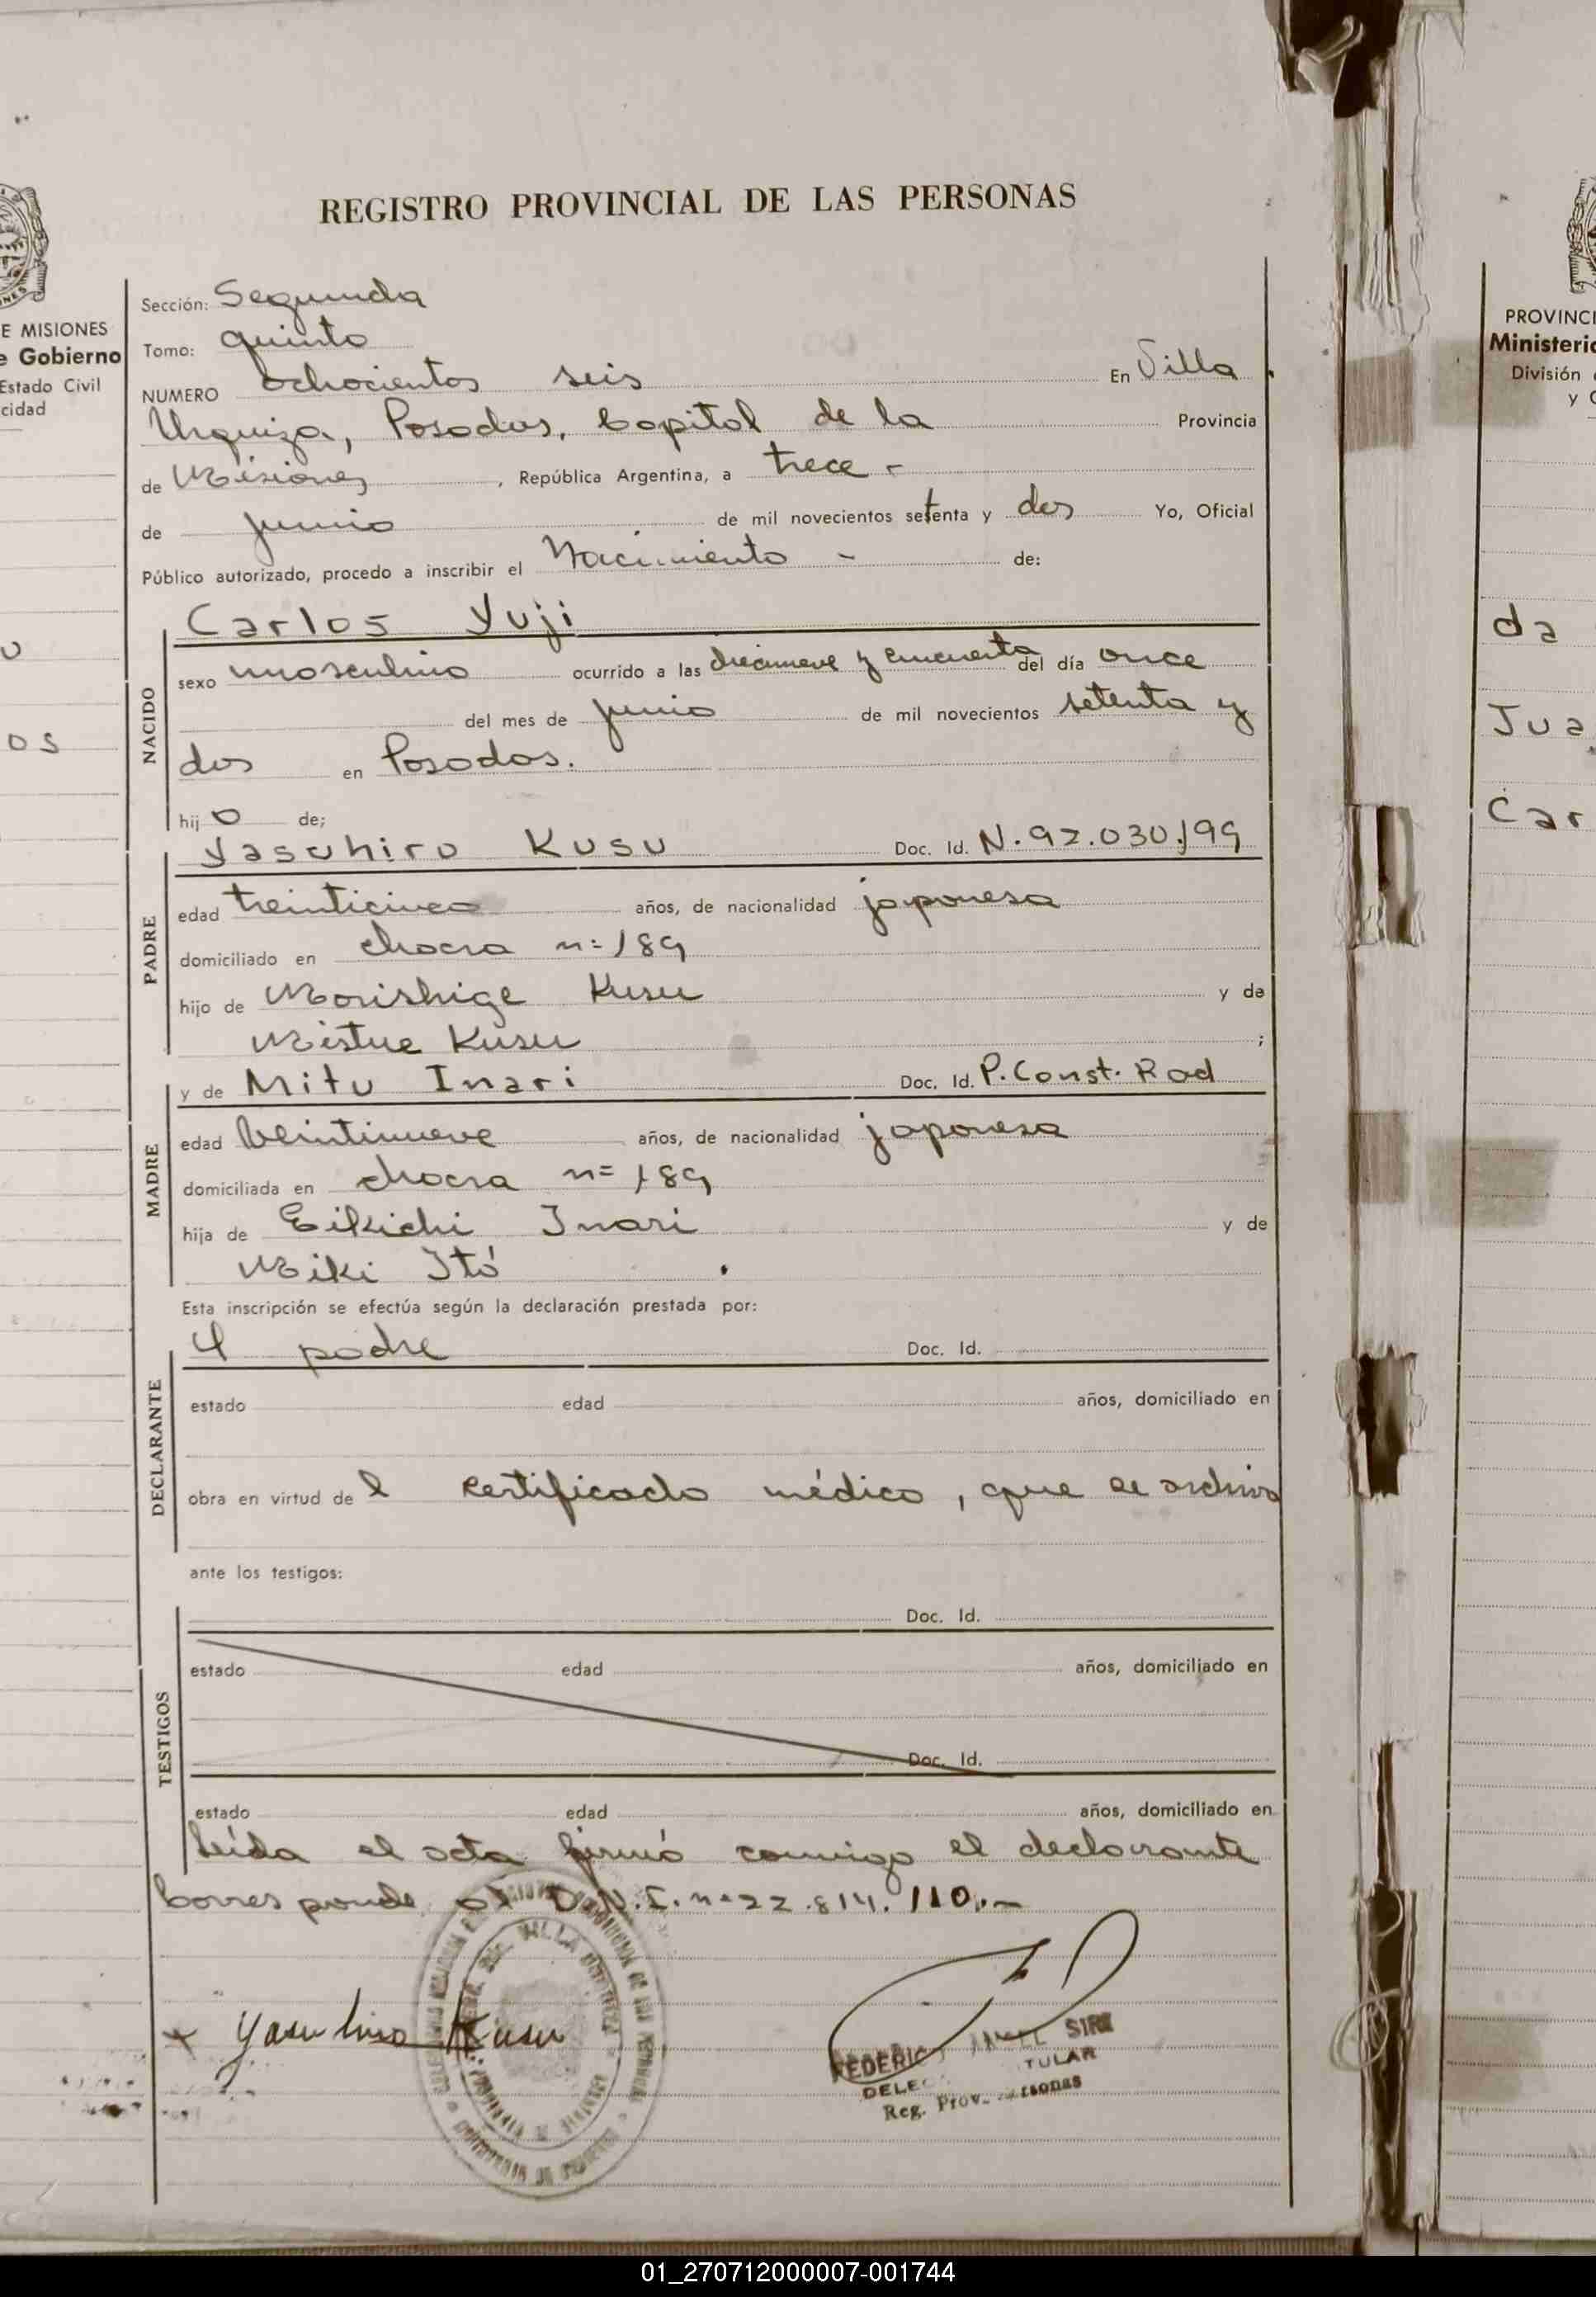 REGISTRO PROVINCIAL DE LAS PERSONAS
E MISIONES
e Gobierno
Estado Civil
cidad
Sección: Segunda
Tomo: quinto
NUMERO ochocientos seis En Villa
Urquiza, Posadas, Capital de la Provincia
de Misiones, República Argentina, a trece -
de junio de mil novecientos setenta y dos Yo, Oficial
Público autorizado, procedo a inscribir el Nacimiento - de:
NACIDO
Carlos Yuji
sexo masculino ocurrido a las diecinueve y cincuenta del día once
del mes de junio de mil novecientos setenta y
dos en Posadas.
hijo de;
PADRE
Yasuhiro Kusu Doc. Id. N. 92.030.199
edad treinticinco años, de nacionalidad japonesa
domiciliado en chacra n= 189
hijo de Morishige Kusu y de
Mistue Kusu ;
MADRE
y de Mitu Inari Doc. Id. P. Const. Rad
edad veintinueve años, de nacionalidad japonesa
domiciliada en chacra n= 189
hija de Eikichi Inari y de
Miki Itó .
Esta inscripción se efectúa según la declaración prestada por:
DECLARANTE
El padre Doc. Id.
estado edad años, domiciliado en
obra en virtud del certificado médico, que se archiva
ante los testigos:
TESTIGOS
Doc. Id.
estado edad años, domiciliado en
Doc. Id.
estado edad años, domiciliado en
Leída el acta firmó conmigo el declarante
Corresponde al D.N.I. n= 22.814.110.-
Yasuhiro Kusu
FEDERICO SIRI
DELE TULAR
Reg. Prov. Personas
PROVINCI
Ministerio
División
da
Jua
Car
01_270712000007-001744